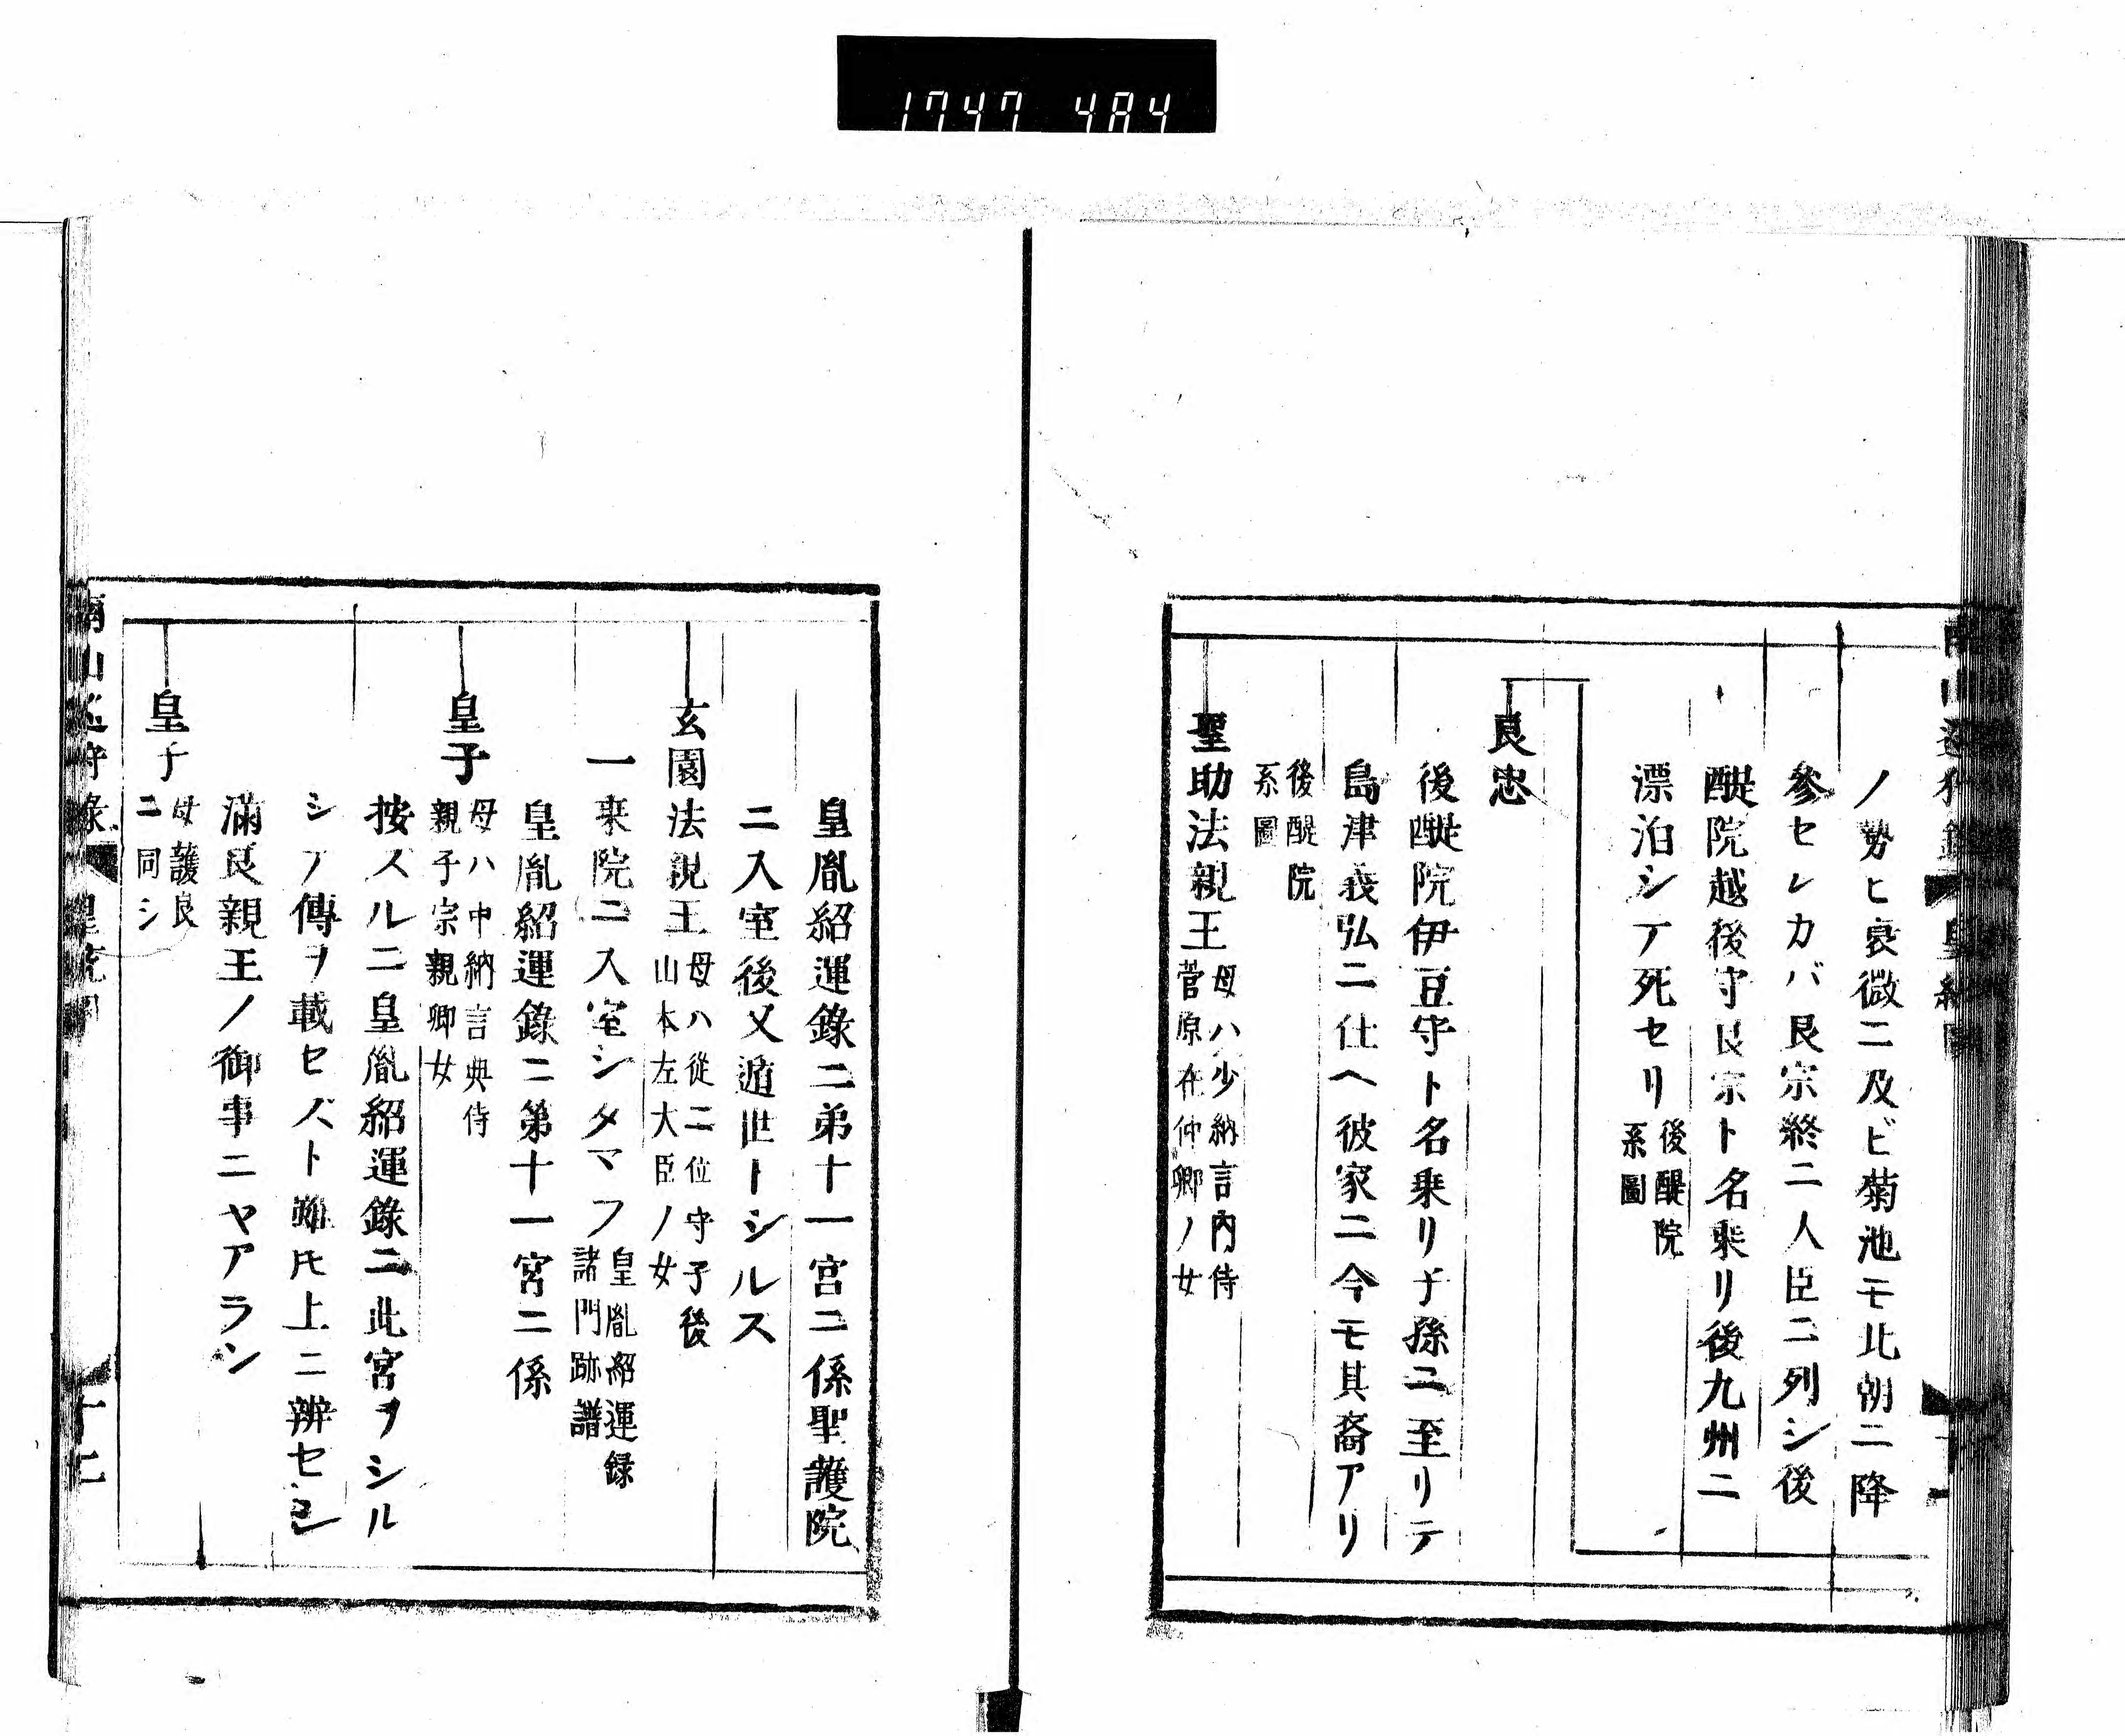 1747 484
ノ勢ヒ衰微ニ及ビ菊池モ北朝ニ降
參セレカバ良宗終ニ人臣ニ列シ後
醍院越後守良宗ト名乘リ後九州ニ
漂泊シテ死セリ
後醍院
系圖
良忠
後醍院伊豆守ト名乘リ子孫ニ至リテ
島津義弘ニ仕ヘ彼家ニ今モ其裔アリ
後醍院
系圖
聖助法親王
母ハ少納言内侍
菅原在仲卿ノ女
皇胤紹運錄ニ弟十一宮ニ係聖護院
ニ入室後又遁世トシルス
玄園法親王
母ハ從二位守子後
山本左大臣ノ女
一乘院ニ入室シタマフ
皇胤紹運録
諸門跡譜
皇胤紹運錄ニ第十一宮ニ係
皇子
母ハ中納言典侍
親子宗親卿女
按スルニ皇胤紹運錄ニ此宮ヲシル
シテ傳ヲ載セズト雖𪜈上ニ辨セシ
滿良親王ノ御事ニヤアラン
皇子
母護良
ニ同シ
南山巡狩錄
皇統圖
十二